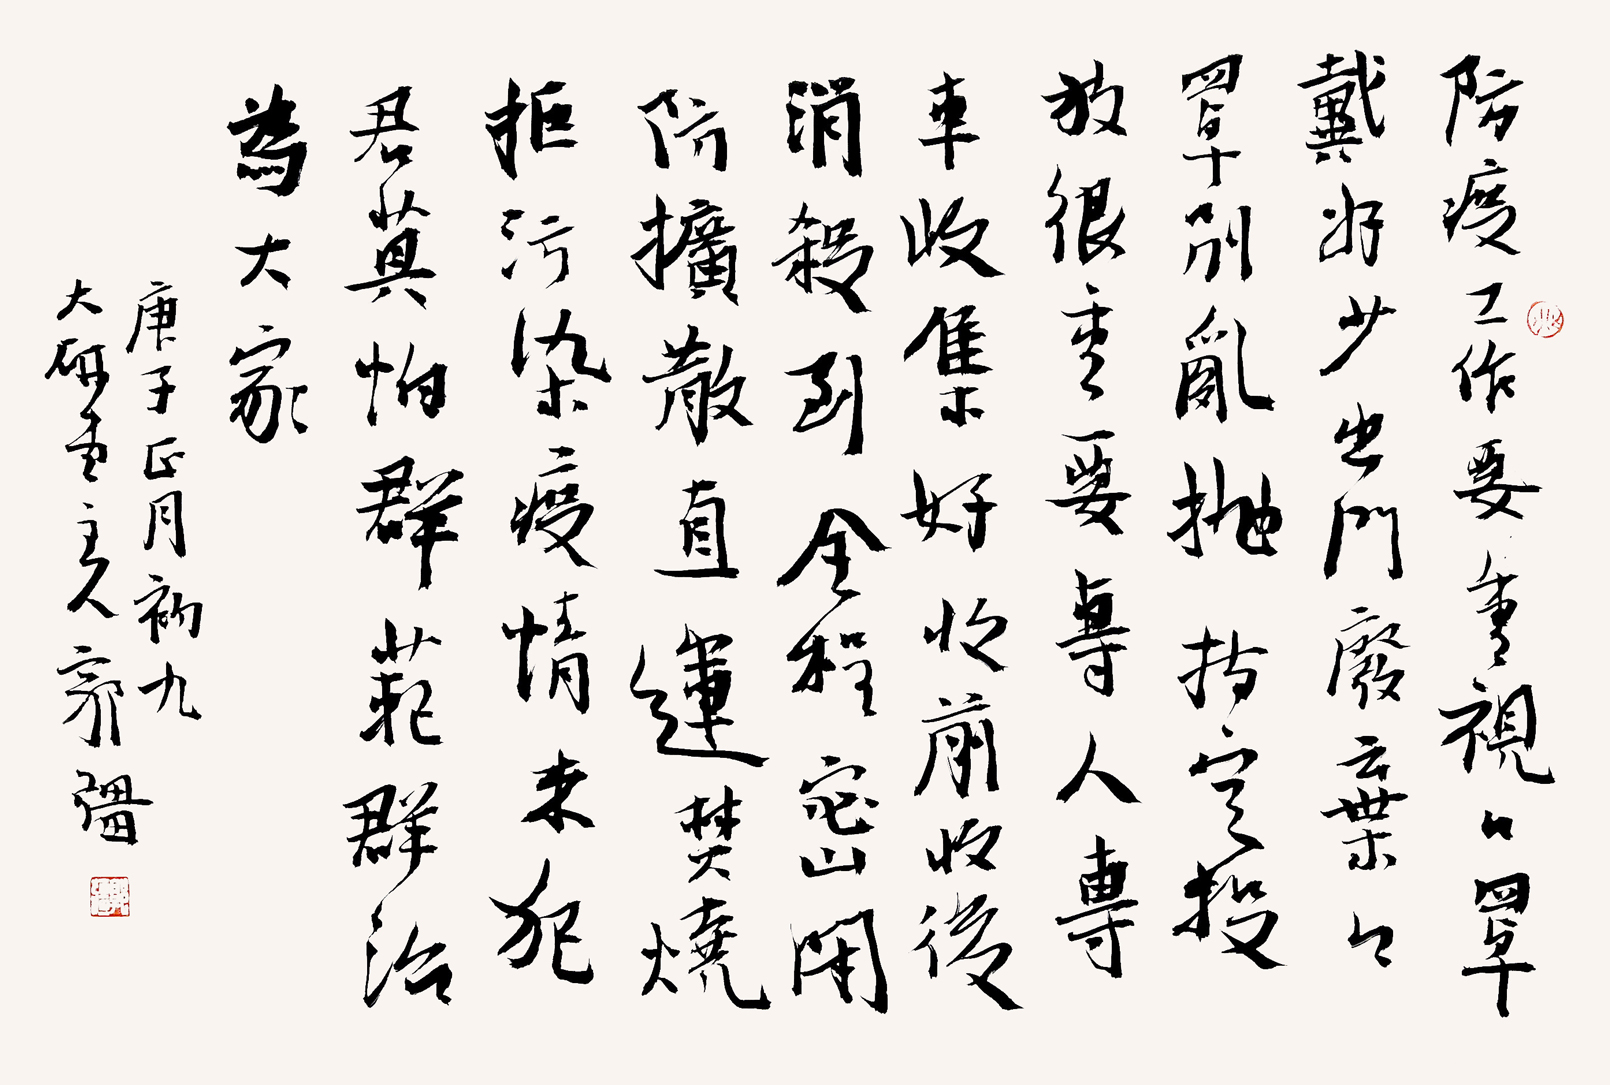 防疫工作要重視口罩
戴好少出門廢棄口
罩別亂拋指定投
放很重要專人專
車收集好收前收後
消殺到全程密閉
防擴散直運焚燒
拒污染疫情未犯
君莫怕群範群治
為大家
庚子正月初九
大研主人郭疆